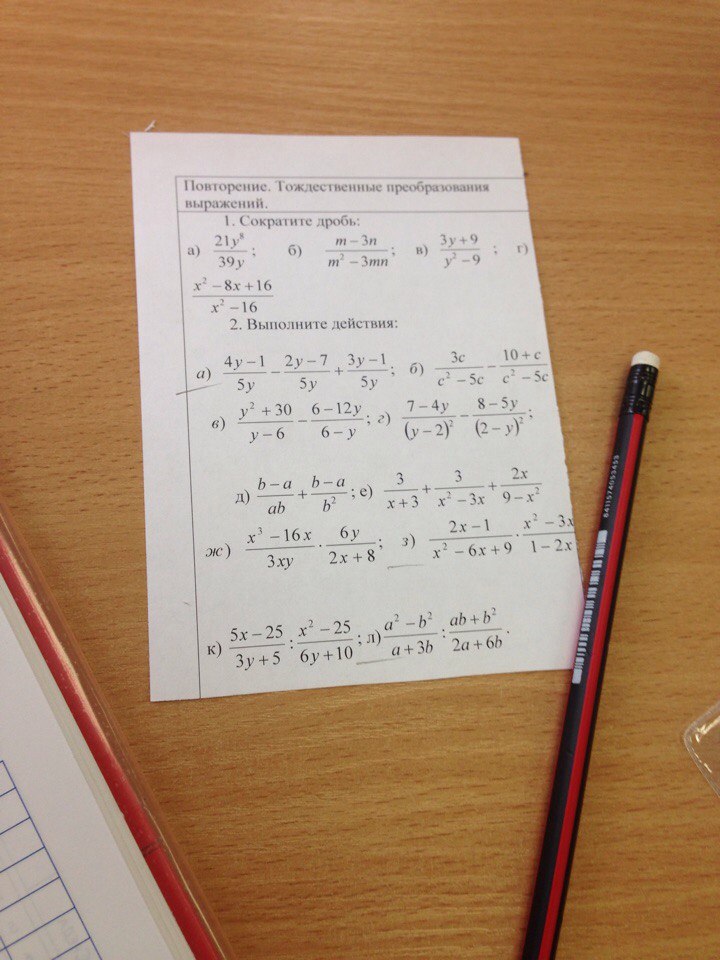 Повторение. Тождественные преобразования
выражений.
1. Сократите дробь:
а) \frac{21y^8}{39y}; б) \frac{m-3n}{m^2-3mn}; в) \frac{3y+9}{y^2-9}; г)
\frac{x^2-8x+16}{x^2-16}
2. Выполните действия:
а) \frac{4y-1}{5y} - \frac{2y-7}{5y} + \frac{3y-1}{5y}; б) \frac{3c}{c^2-5c} - \frac{10+c}{c^2-5c}
в) \frac{y^2+30}{y-6} - \frac{6-12y}{6-y}; г) \frac{7-4y}{(y-2)^2} - \frac{8-5y}{(2-y)^2};
д) \frac{b-a}{ab} + \frac{b-a}{b^2}; е) \frac{3}{x+3} + \frac{3}{x^2-3x} + \frac{2x}{9-x^2}
ж) \frac{x^3-16x}{3xy} · \frac{6y}{2x+8}; з) \frac{2x-1}{x^2-6x+9} · \frac{x^2-3x}{1-2x}
к) \frac{5x-25}{3y+5} : \frac{x^2-25}{6y+10}; л) \frac{a^2-b^2}{a+3b} : \frac{ab+b^2}{2a+6b}.
8411574053453